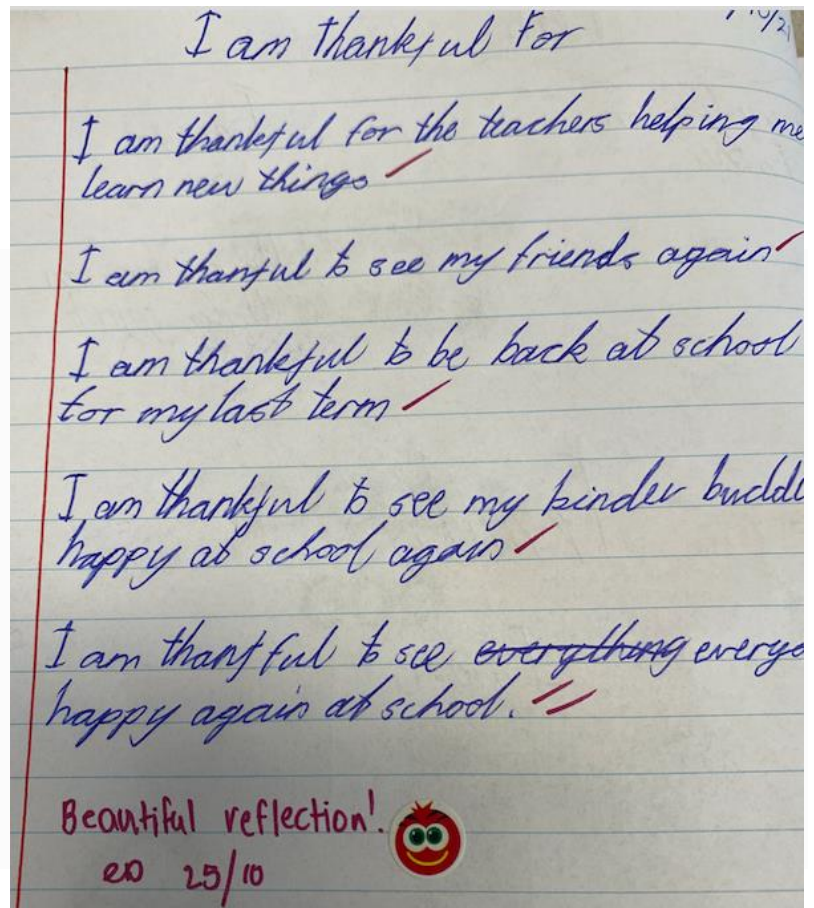 I am thankful For
I am thankful for the teachers helping me
learn new things
I am thanful to see my friends again
I am thankful to be back at school
for my last term
I am thankful to see my kinder
happy at school again
I am thantful to see everything
happy again at school.
Beautiful reflection!
25/10